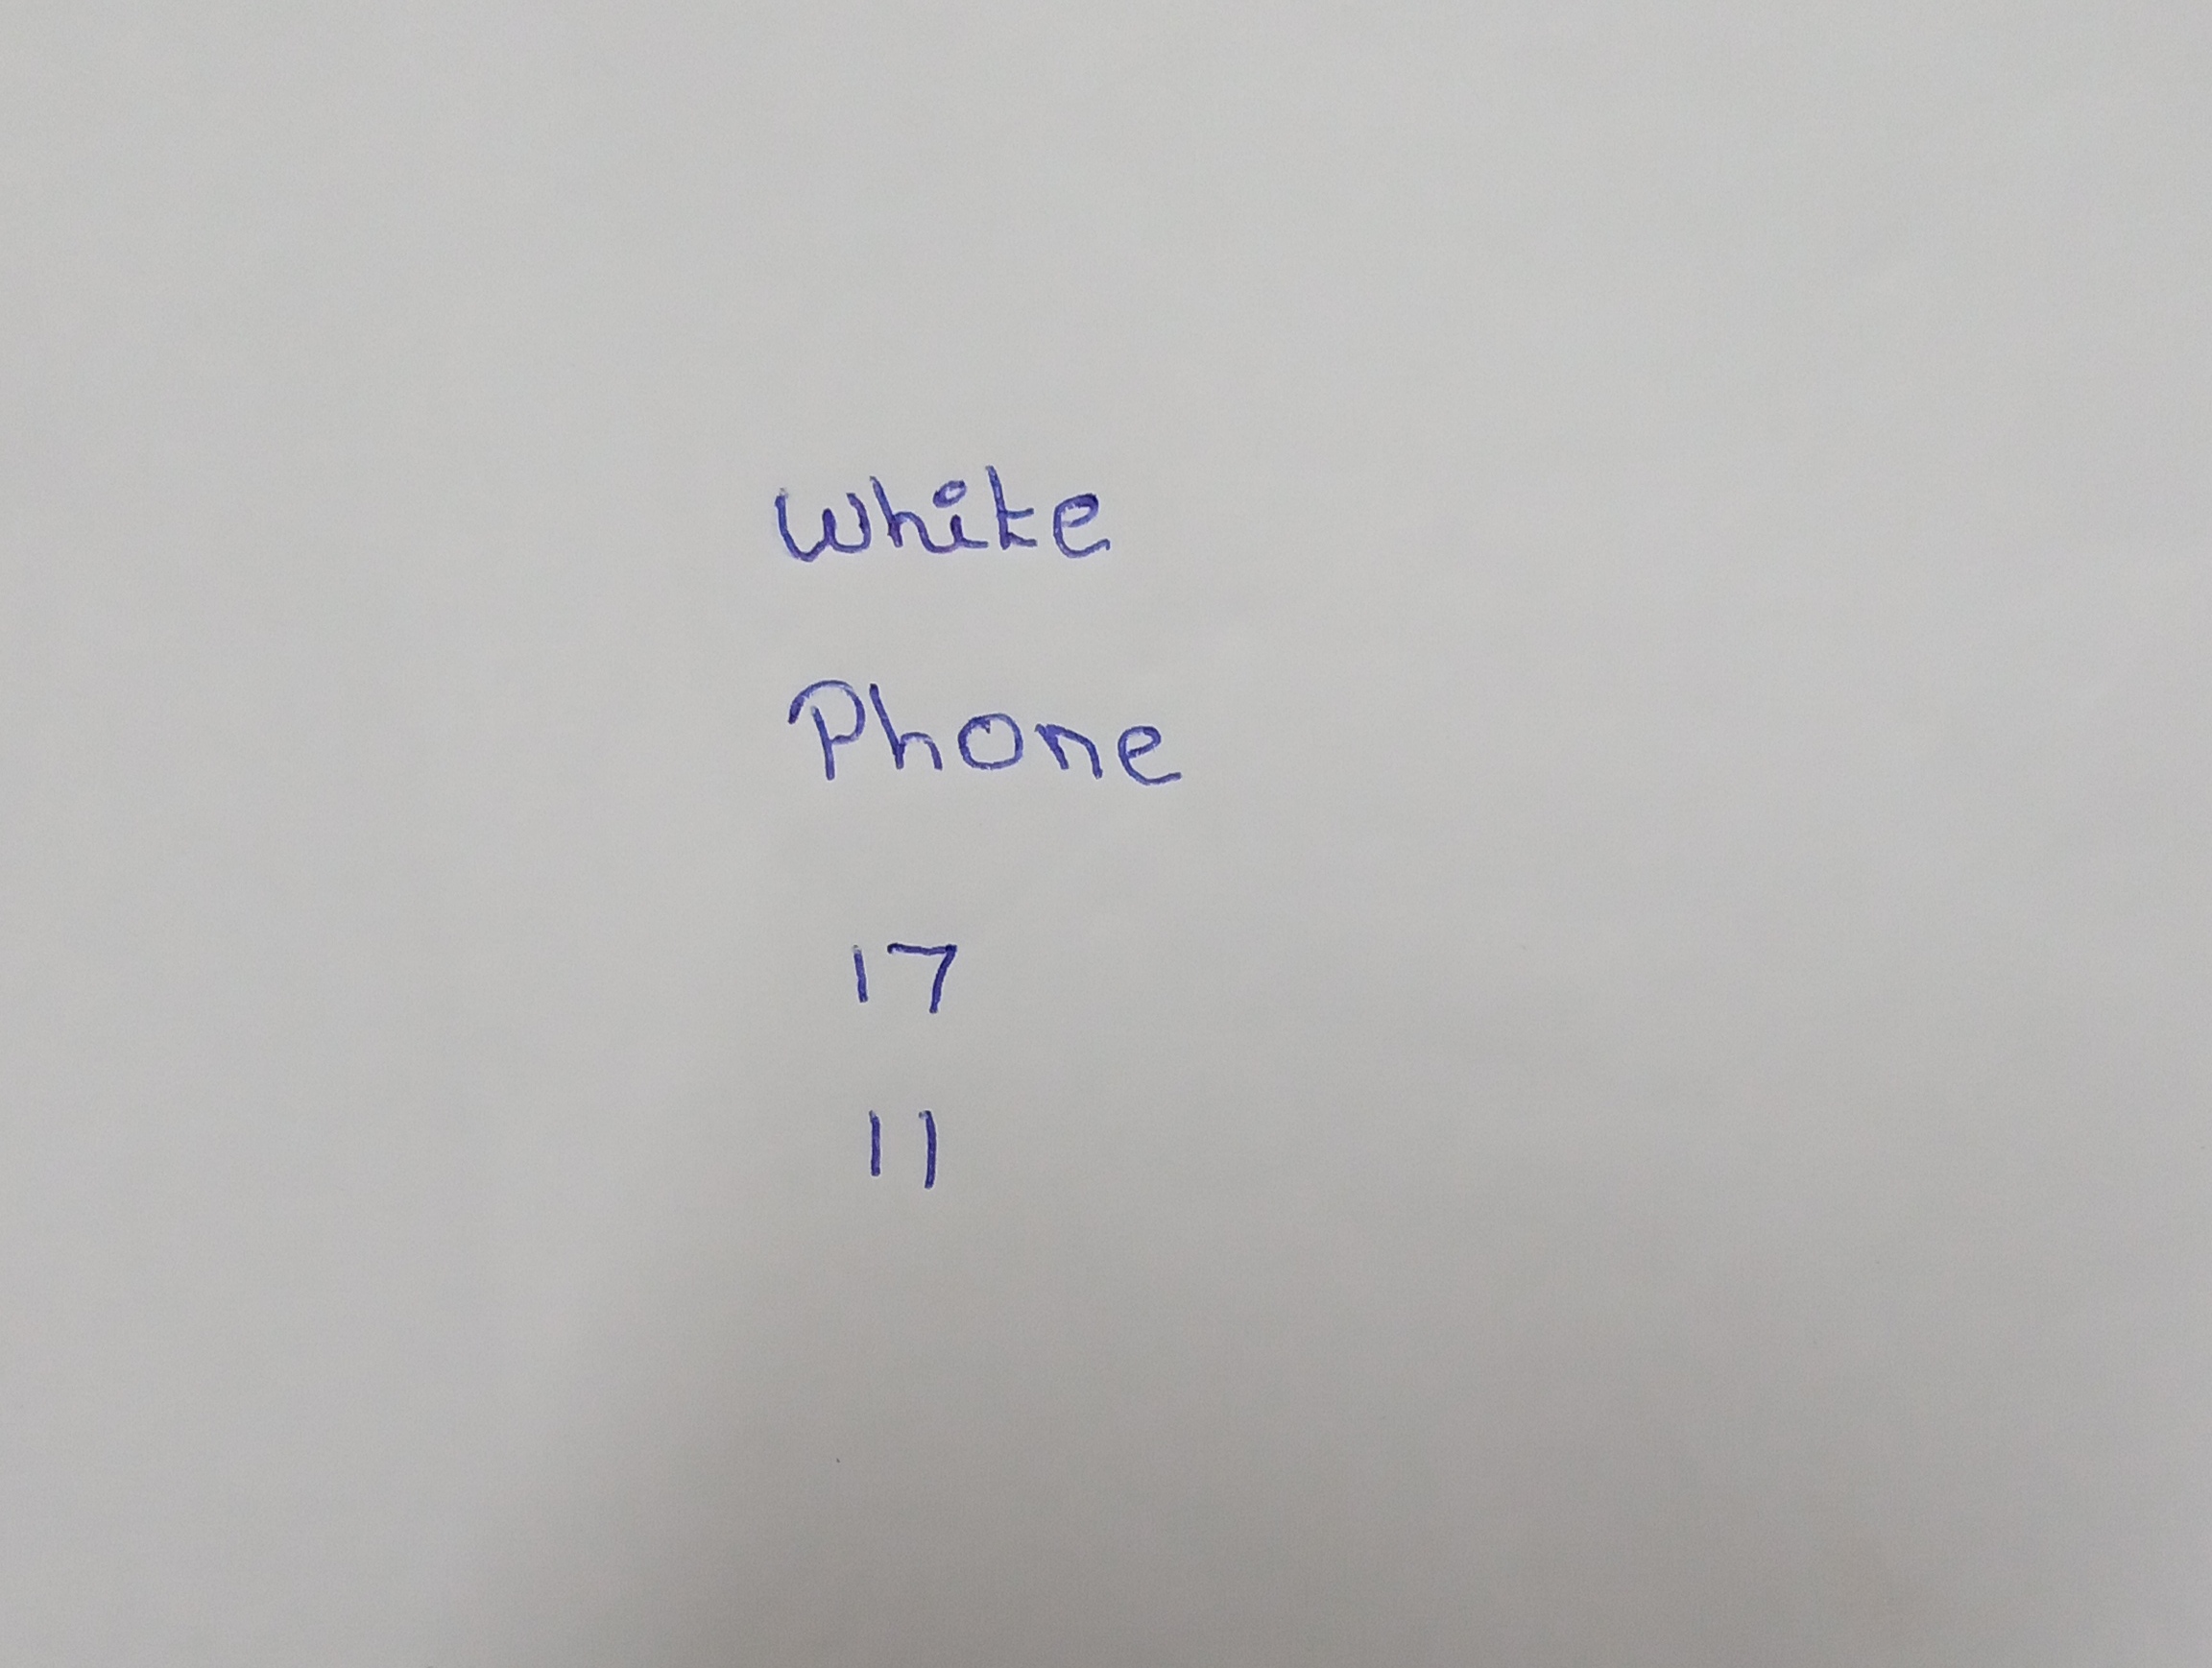 White
Phone
17
11